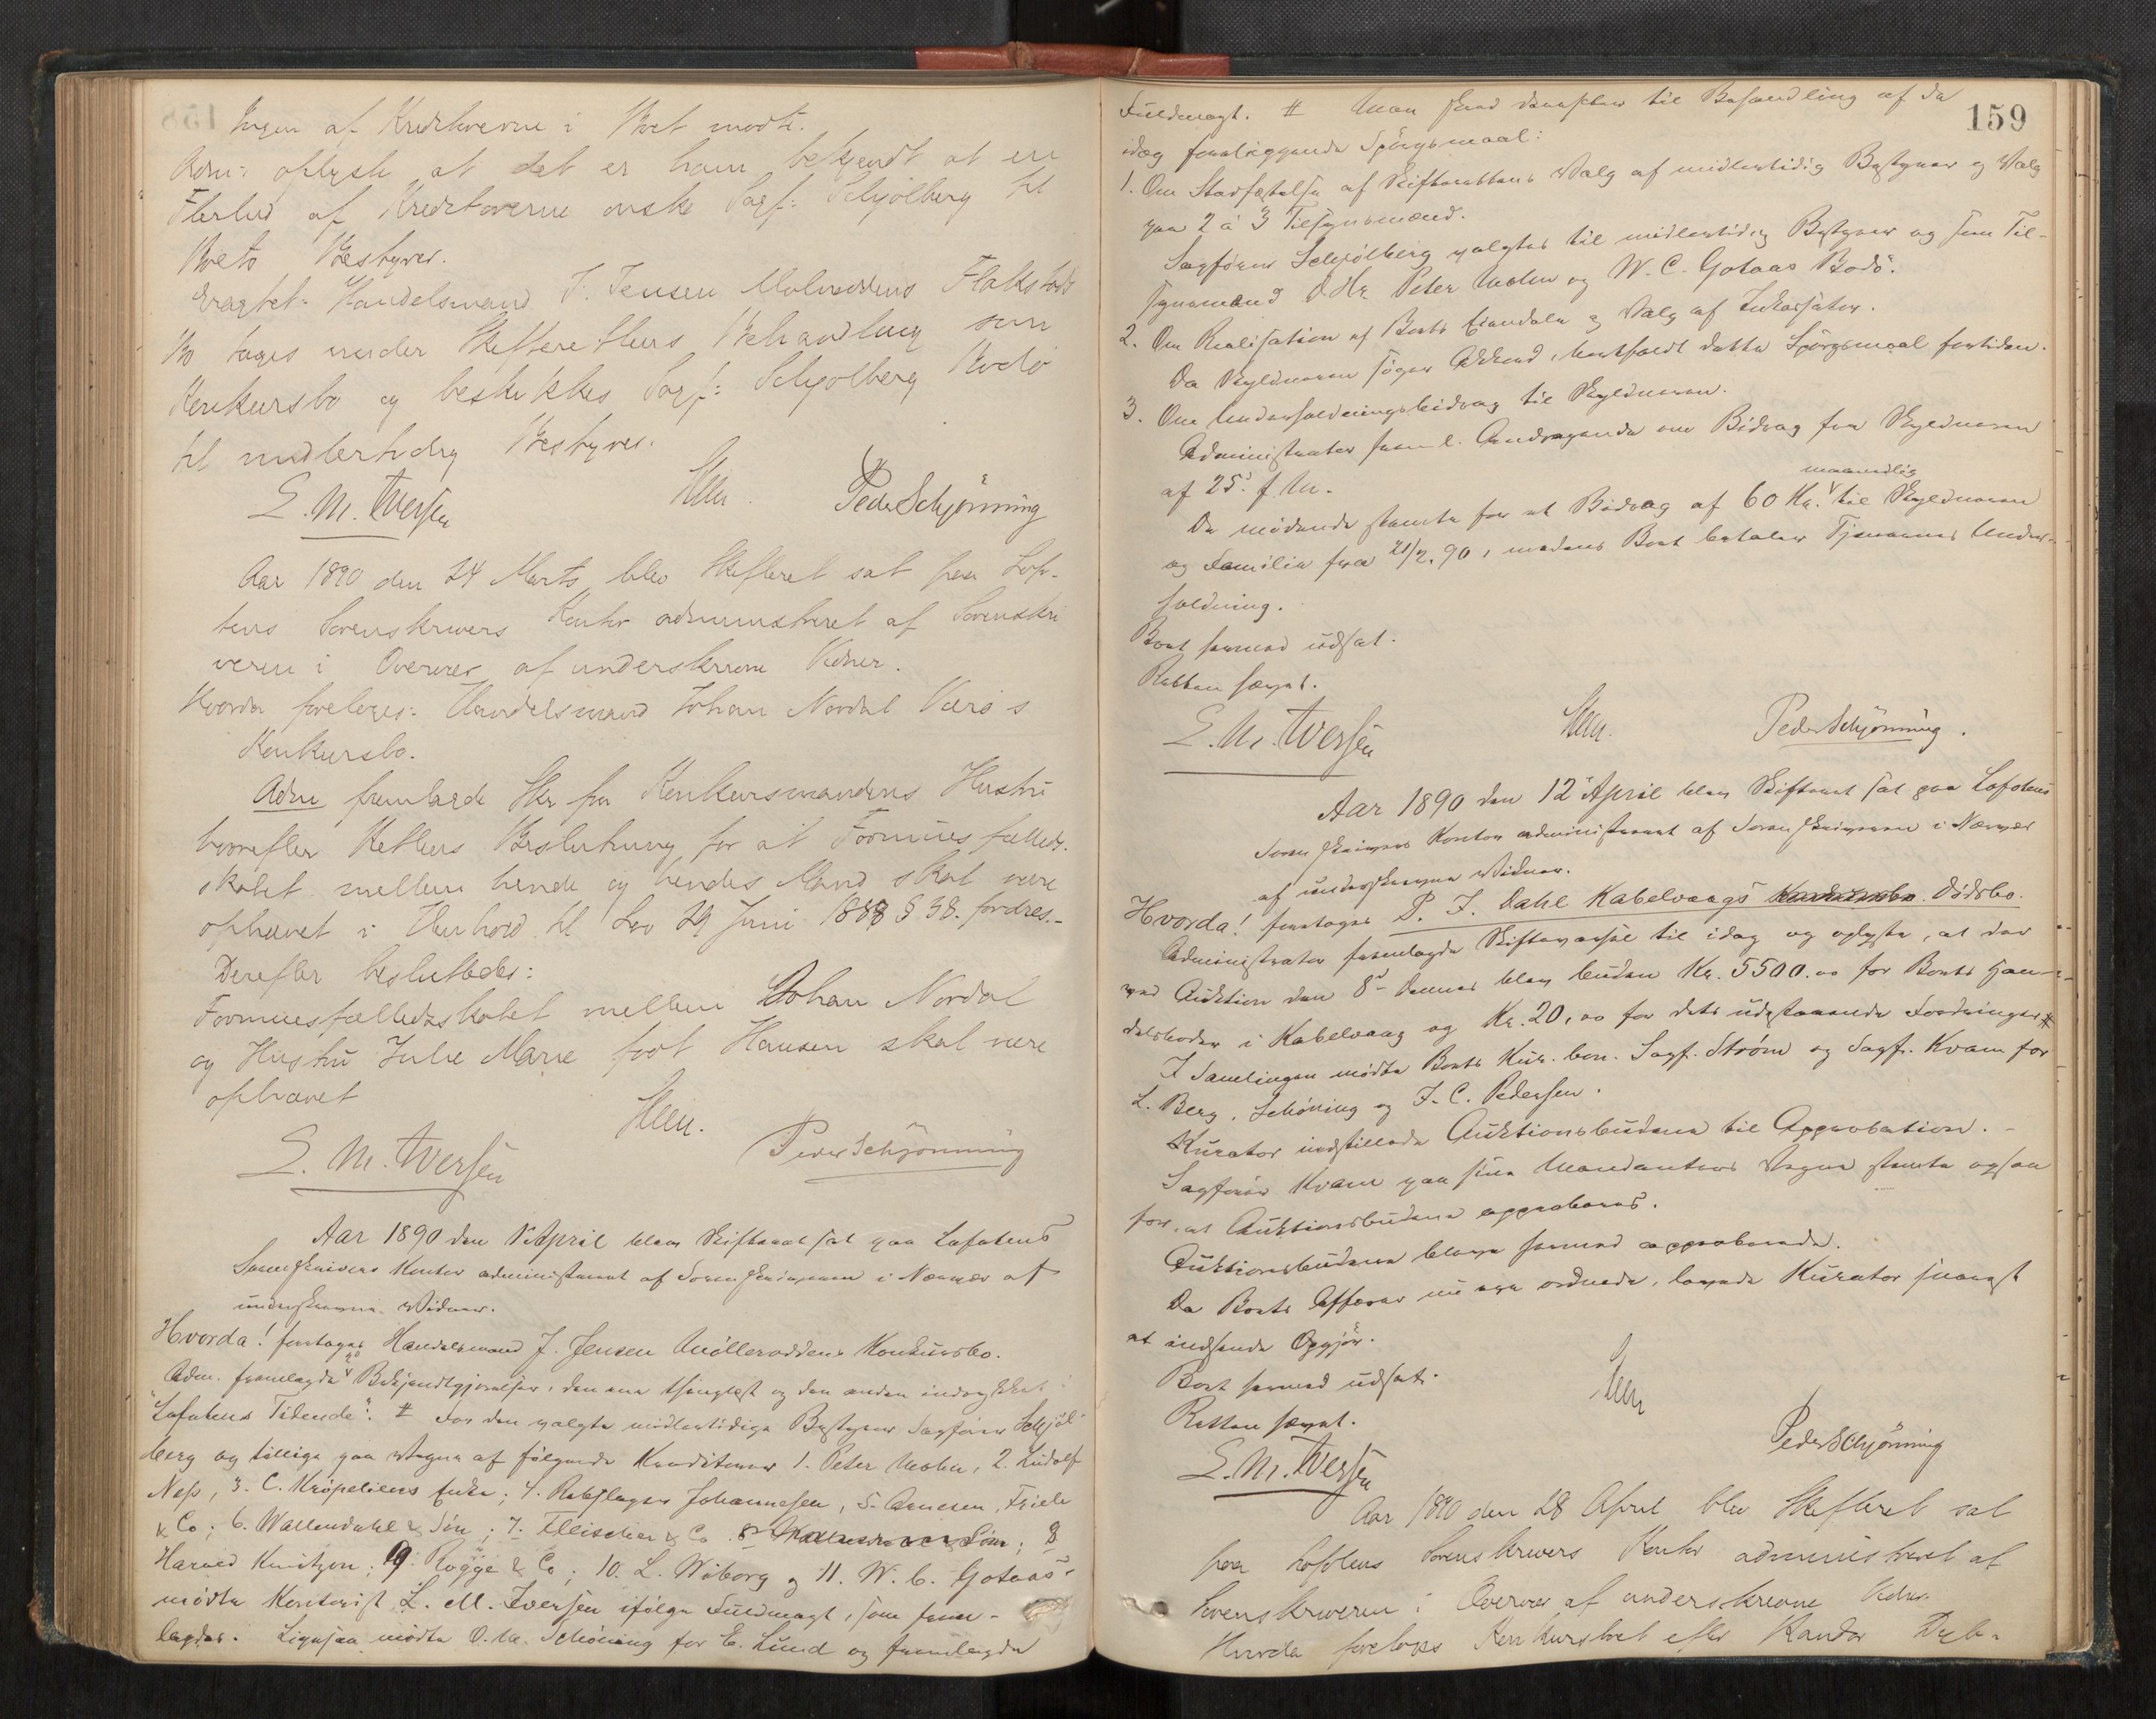 Ingen af Kreditorerne i Boet mødte.
Adm: oplyste at det er ham bekjendt at en
Flerhed af Kreditorerne ønske Sagf: Schjølberg til
Boets Bestyrer.
Eragtet: Handelsmand J. Jensen Mølnoddens Flakstads
Bo tages under Skifterettens Behandling som
Konkursbo og beskikkes Sagf: Schjølberg Bodø
til midlertidig Bestyrer.
E. M. Iversen Peder Schjønning
Aar 1890 den 24 Marts blev Skifteret sat paa Lofo-
tens Sorenskrivers Kontor administreret af Sorenskri
veren i Overvær af underskrevne Vidner.
Hvorda foretoges: Handelsmand Johan Nordal Værø's
Konkursbo.
Adm fremlagde Skr fra Konkursmandens Hustru
hvorefter Rettens Beslutning for at Formuesfælleds-
skabet mellem hende og hendes Mand skal være
ophævet i Henhold til Lov 29 Juni 1888 § 38. fordres.-
Derefter besluttedes:
Formuesfælledsskabet mellem Johan Nordal
og Hustru Julie Marie født Hansen skal være
ophævet
E. M. Iversen Peder Schjønning
Aar 1890 den 1' April blev Skifteret sat paa Lofotens
Sorenskrivers Kontor administreret af Sorenskriveren i Nærvær af
underskrevne Vidner.
Hvorda! foretoges Handelsmand J. Jensen Mølleroddens Konkursbo.
Adm. fremlagde 2de Bekjendtgjørelser, den ene thinglæst og den anden indrykket i
"Lofotens Tidende". # For den valgte midlertidige Bestyrer Sagfører Schjøl-
berg og tillige paa Vegne af følgende Kreditorer 1. Peter Mohn, 2. Ludolf
Ness, 3. C. Krøpeliens Enke; 4. Rebslager Johannesen, 5. Arnesen, Friele
& Co; 6. Wallendahl & Søn; 7. Fleischer & Co. 8
Harald Knutzon; 9. Rogge & Co; 10. L. Wiborg og 11. W. C. Gotaas
mødte Kontorist L. M. Iversen ifølge Fuldmagt, som frem-
lagdes. Ligesaa mødte O. M. Schöning for E. Lund og fremlagde
159
Fuldmagt. # Man skred derefter til Behandling af de
idag foreliggende Spörgsmaal:
1. Om Stadfæstelse af Skifterettens Valg af midlertidig Bestyrer og Valg
paa 2 à 3 Tilsynsmænd.
Sagfører Schjølberg valgtes til midlertidig Bestyrer og som Til-
synsmænd D'Hr Peter Mohn og W. C. Gotaas Bodö.
2. Om Realisation af Boets Eiendele og Valg af Inkassator.
Da Skyldneren søger Akkord, bortfaldt dette Spörgsmaal fortiden.
3. Om Underholdningsbidrag til Skyldneren.
Administrator freml. Andragende om Bidrag fra Skyldneren
af 25' f. M.
De mødende stemte for et Bidrag af 60 Kr. maanedlig til Skyldneren
og Familie fra 21/2. 90, medens Boet betaler Tjenernes Under-
holdning.
Boet hermed udsat.
Retten hævet.
E. M. Iversen Peder Schjønning.
Aar 1890 den 12' April blev Skifteret sat paa Lofotens
Sorenskrivers Kontor administreret af Sorenskriveren i Nærvær
af underskrevne Vidner.
Hvorda! foretoges P. J. Dahl Kabelvaags Konkursbo. Dödsbo.
Administrator fremlagde Skiftevarsel til idag og oplyste, at der
ved Auktion den 8' dennes blev buden Kr. 5500.00 for Boets Han-
delsboder i Kabelvaag og Kr. 20,00 for dets udestaaende Fordringer #
I Samlingen mödte Boets Kur. bon. Sagf. Ström og Sagf. Kvam for
L. Berg, Schöning og J. C. Pedersen.
Kurator indstillede Auktionsbudene til Approbation. -
Sagfører Kvam paa sine Mandanters Vegne stemte ogsaa
for, at Auktionsbudene approberes.
Auktionsbudene bleve hermed approberede.
Da Boets Affærer nu ere ordnede, lovede Kurator snarest
at indsende Opgjör.
Boet hermed udsat.
Retten hævet.
E. M. Iversen Peder Schjønning
Aar 1890 den 28 April blev Skifteret sat
paa Lofotens Sorenskrivers Kontor administreret af
Sorenskriveren i Overvær af underskrevne Vidner.
Hvorda foretoges Konkursboet efter